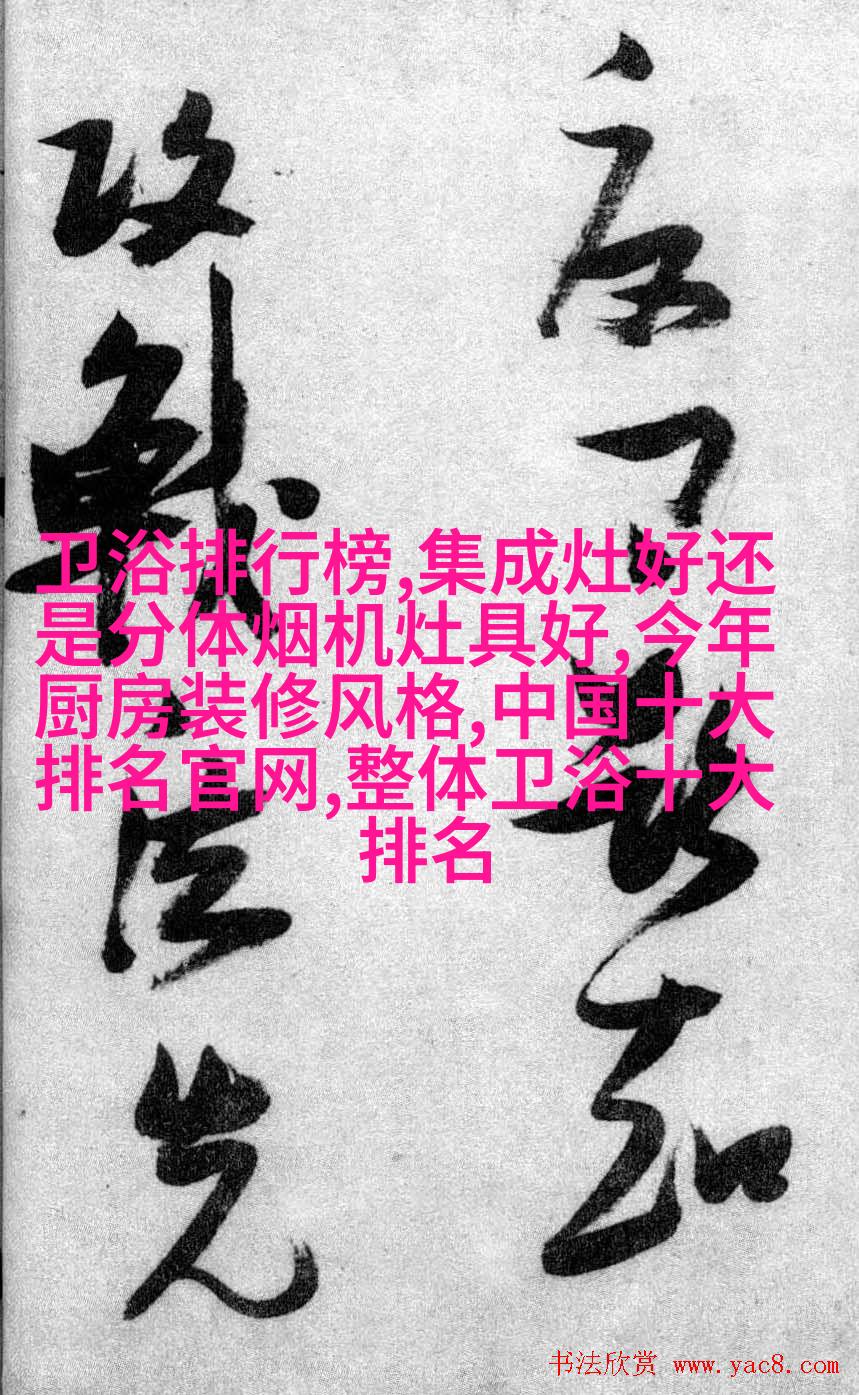 卫浴排行榜,集成灶好还
是分体烟机灶具好,今年
厨房装修风格,中国十大
排名官网,整体卫浴十大
排名
攻戰法先
书法欣赏 www.yac8.com